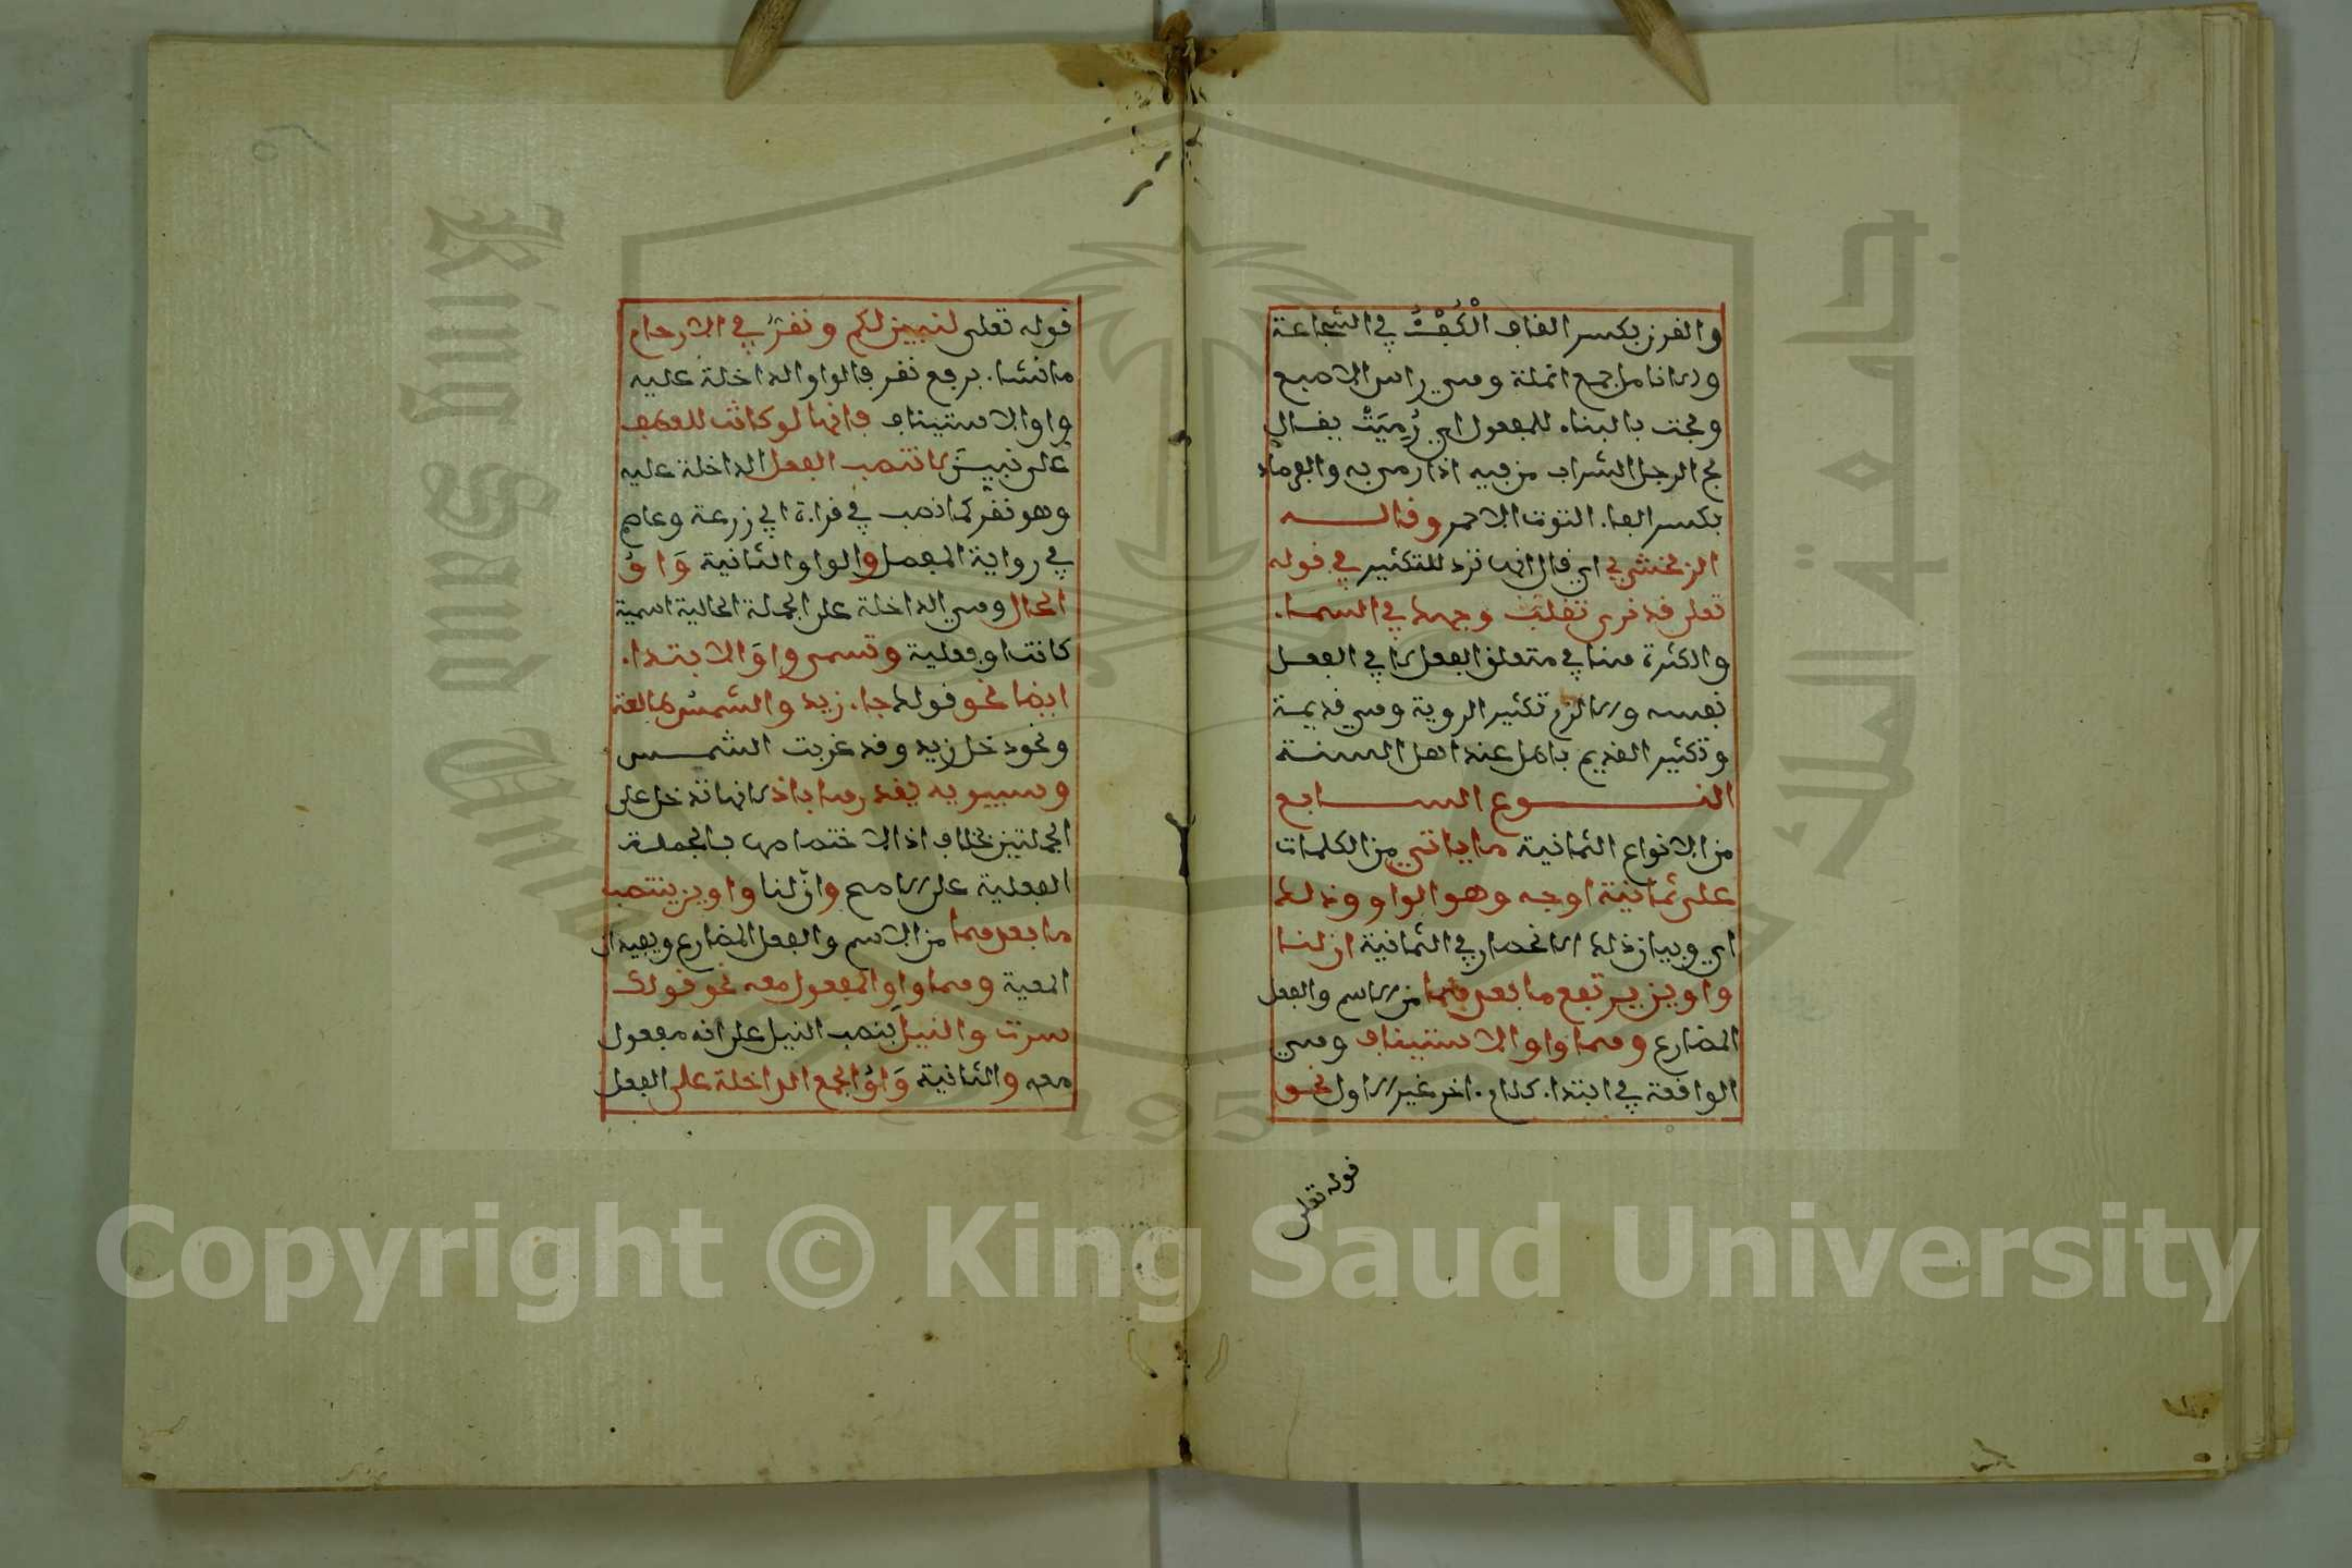 والقرن بكسر القاف الكفؤ في الشجاعة
والانامل جمع انملة وهي راس الاصبع
ومجت بالبناء للمفعول اي رُمِيَتْ يقال
مج الرجل الشراب من فيه اذا رمى به والفرصاد
بكسر الفاء التوت الاحمر وقالــــه
الزمخشري اي قال انها ترد للتكثير في قوله
تعلى قد نرى تقلب وجهك في السماء
والكثرة هنا في متعلق الفعل لا في الفعل
نفسه والا لزم تكثير الروية وهي قديمة
وتكثير القديم باطل عند اهل السنة
النــــوع الســــابع
من الانواع الثمانية ما ياتي من الكلمات
على ثمانية اوجه وهو الواو وذلك
اي وبيان ذلك الانحصار في الثمانية ان لنا
واوين يرتفع ما بعدهما من الاسم والفعل
المضارع وهما واو الاستيناف وهي
الواقعة في ابتداء كلام اخر غير الاول نحو
قوله تعلى
قوله تعلى لنبين لكم ونقرُّ في الارحام
ما نشاء برفع نقر فالواو الداخلة عليه
واو الاستيناف فانها لو كانت للعطف
على نبين لانتصب الفعل الداخلة عليه
وهو نقر كما نصب في قراءة ابي زرعة وعاصم
في رواية المفضل والواو الثانية وَاوُ
الحال وهي الداخلة على الجملة الحالية اسمية
كانت او فعلية وتسمى واوَ الابتداء
ايضا نحو قولك جاء زيد والشمسُ طالعة
ونحو دخل زيد وقد غربت الشمــس
وسيبويه يقدرها باذ لانها تدخل على
الجملتين بخلاف اذا لاختصاصها بالجملة
الفعلية على الاصح وانّ لنا واوين ينتصب
ما بعدهما من الاسم والفعل المضارع ويفيدان
المعية وهما واو المفعول معه نحو قولك
سرت والنيلَ بنصب النيل على انه مفعول
معه والثانية وَاوُ الجمع الداخلة على الفعل
Copyright © King Saud University
King Saud University
جامعة الملك سعود
1957